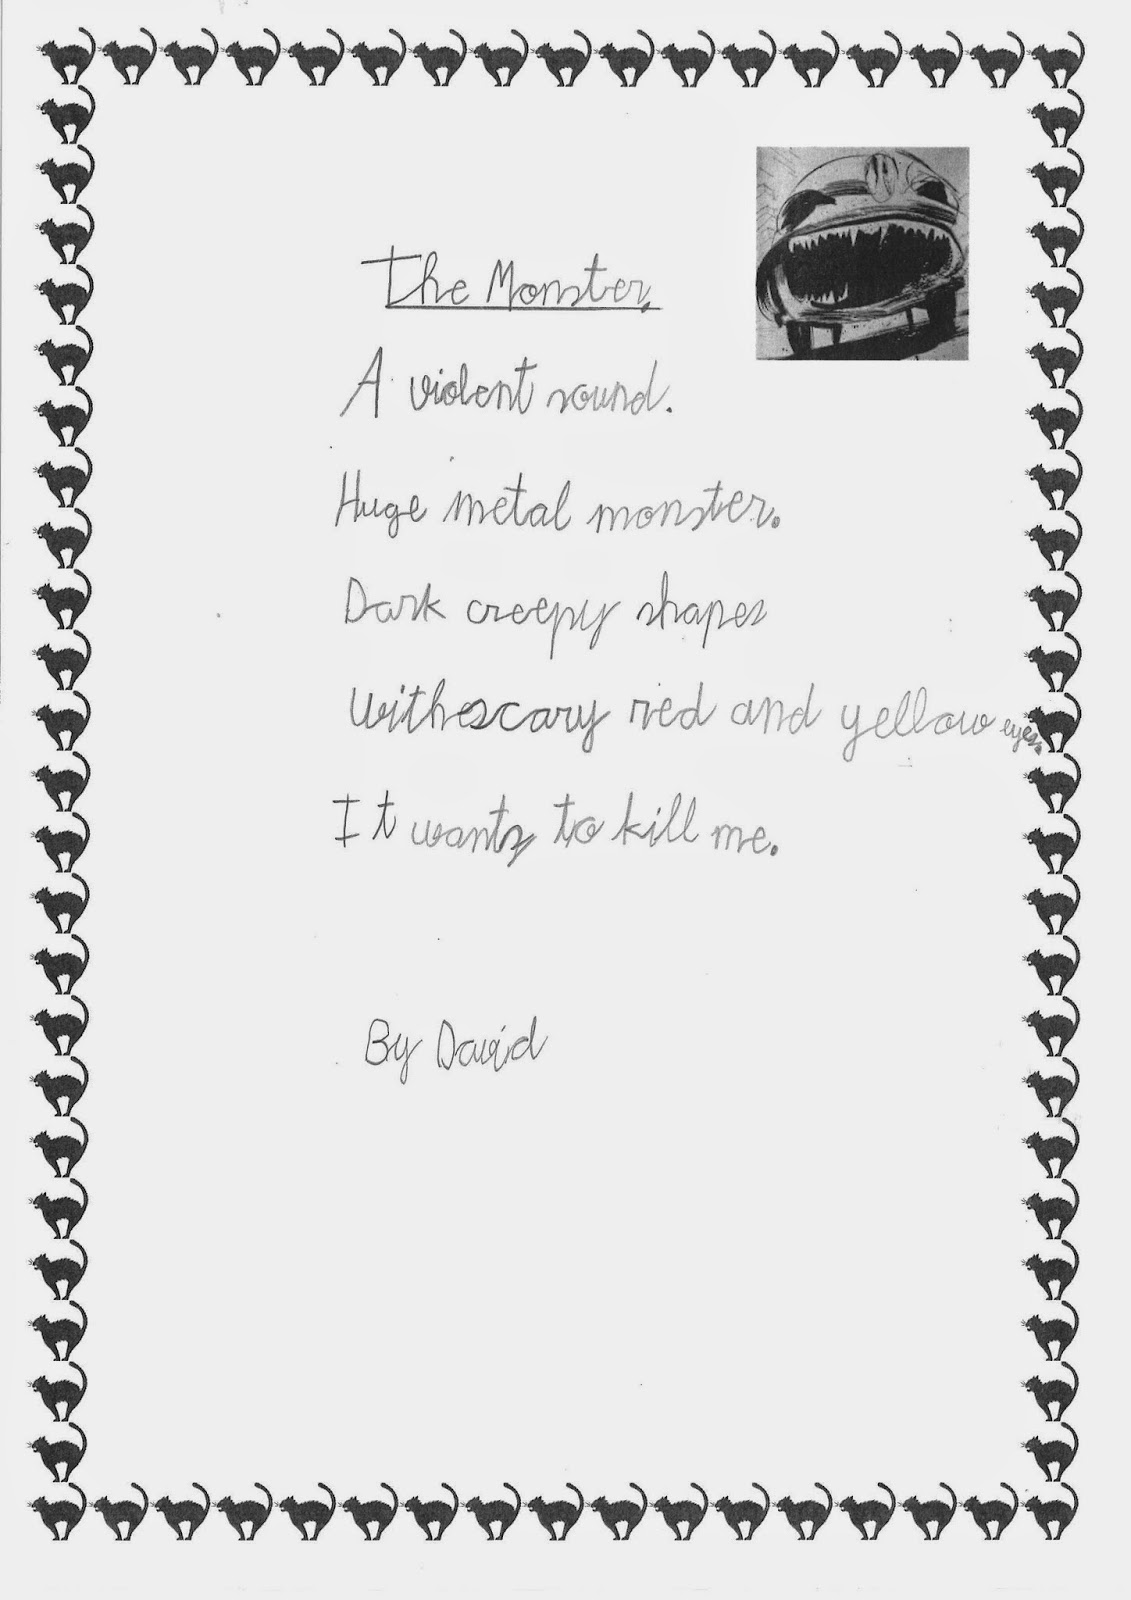 The Monster.
A violent sound.
Huge metal monster.
Dark creepy shapes
with scary red and yellow eyes.
It wants to kill me.
By David